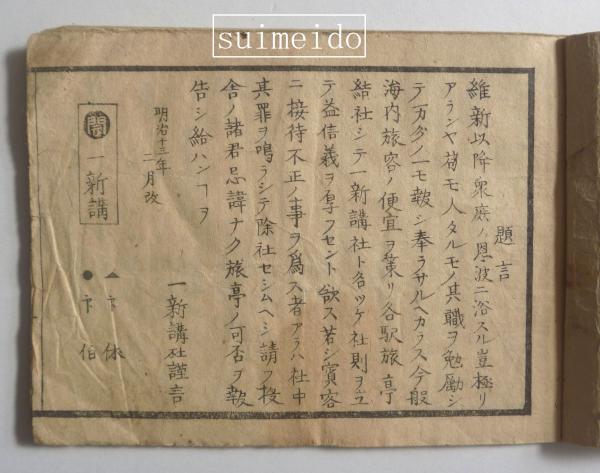 suimeido
題言
維新以降衆庶ノ恩波ニ浴スル豈極リ
アランヤ苟モ人タルモノ其職ヲ勉励シ
テ万分ノ一モ報シ奉ラサルヘカラス今般
海内旅客ノ便宜ヲ業リ各駅旅亭
結社シテ一新講社ト名ツケ社則ヲ立
テ益信義ヲ厚フセント欲ス若シ賓客
ニ接待不正ノ事ヲ為ス者アラハ社中
其罪ヲ鳴ラシテ除社セシムヘシ請フ投
舎ノ諸君忌諱ナク旅亭ノ可否ヲ報
告シ給ハンヿヲ
明治十三年
二月改
一新講社謹言
一新講
▲下休
●下伯